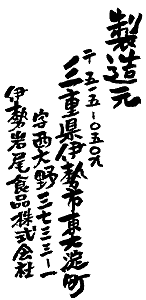 製造元
〒五一五-〇五〇九
三重県伊勢市東大淀町
宮西大野三七三三-一
伊勢岩尾食品株式会社